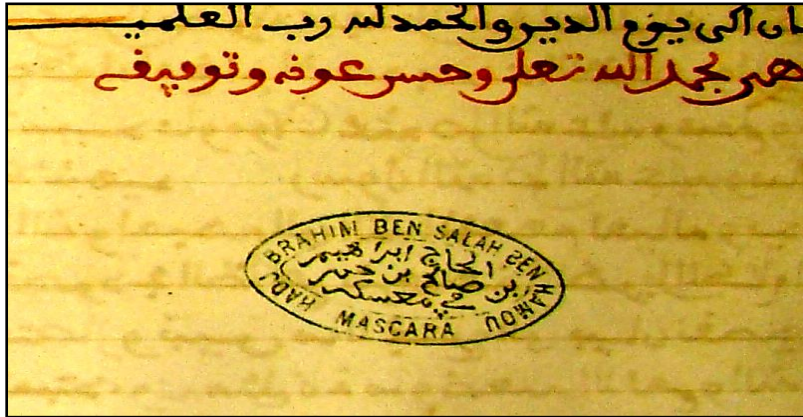 الى يوم الدين والحمد لله رب العلمين
بحمد الله تعلى وحسن عونه وتوفيقه
HADJ BRAHIM BEN SALAH BEN HAMOU
الحاج ابراهيم
بن صالح بن حمو
في معسكر
MASCARA